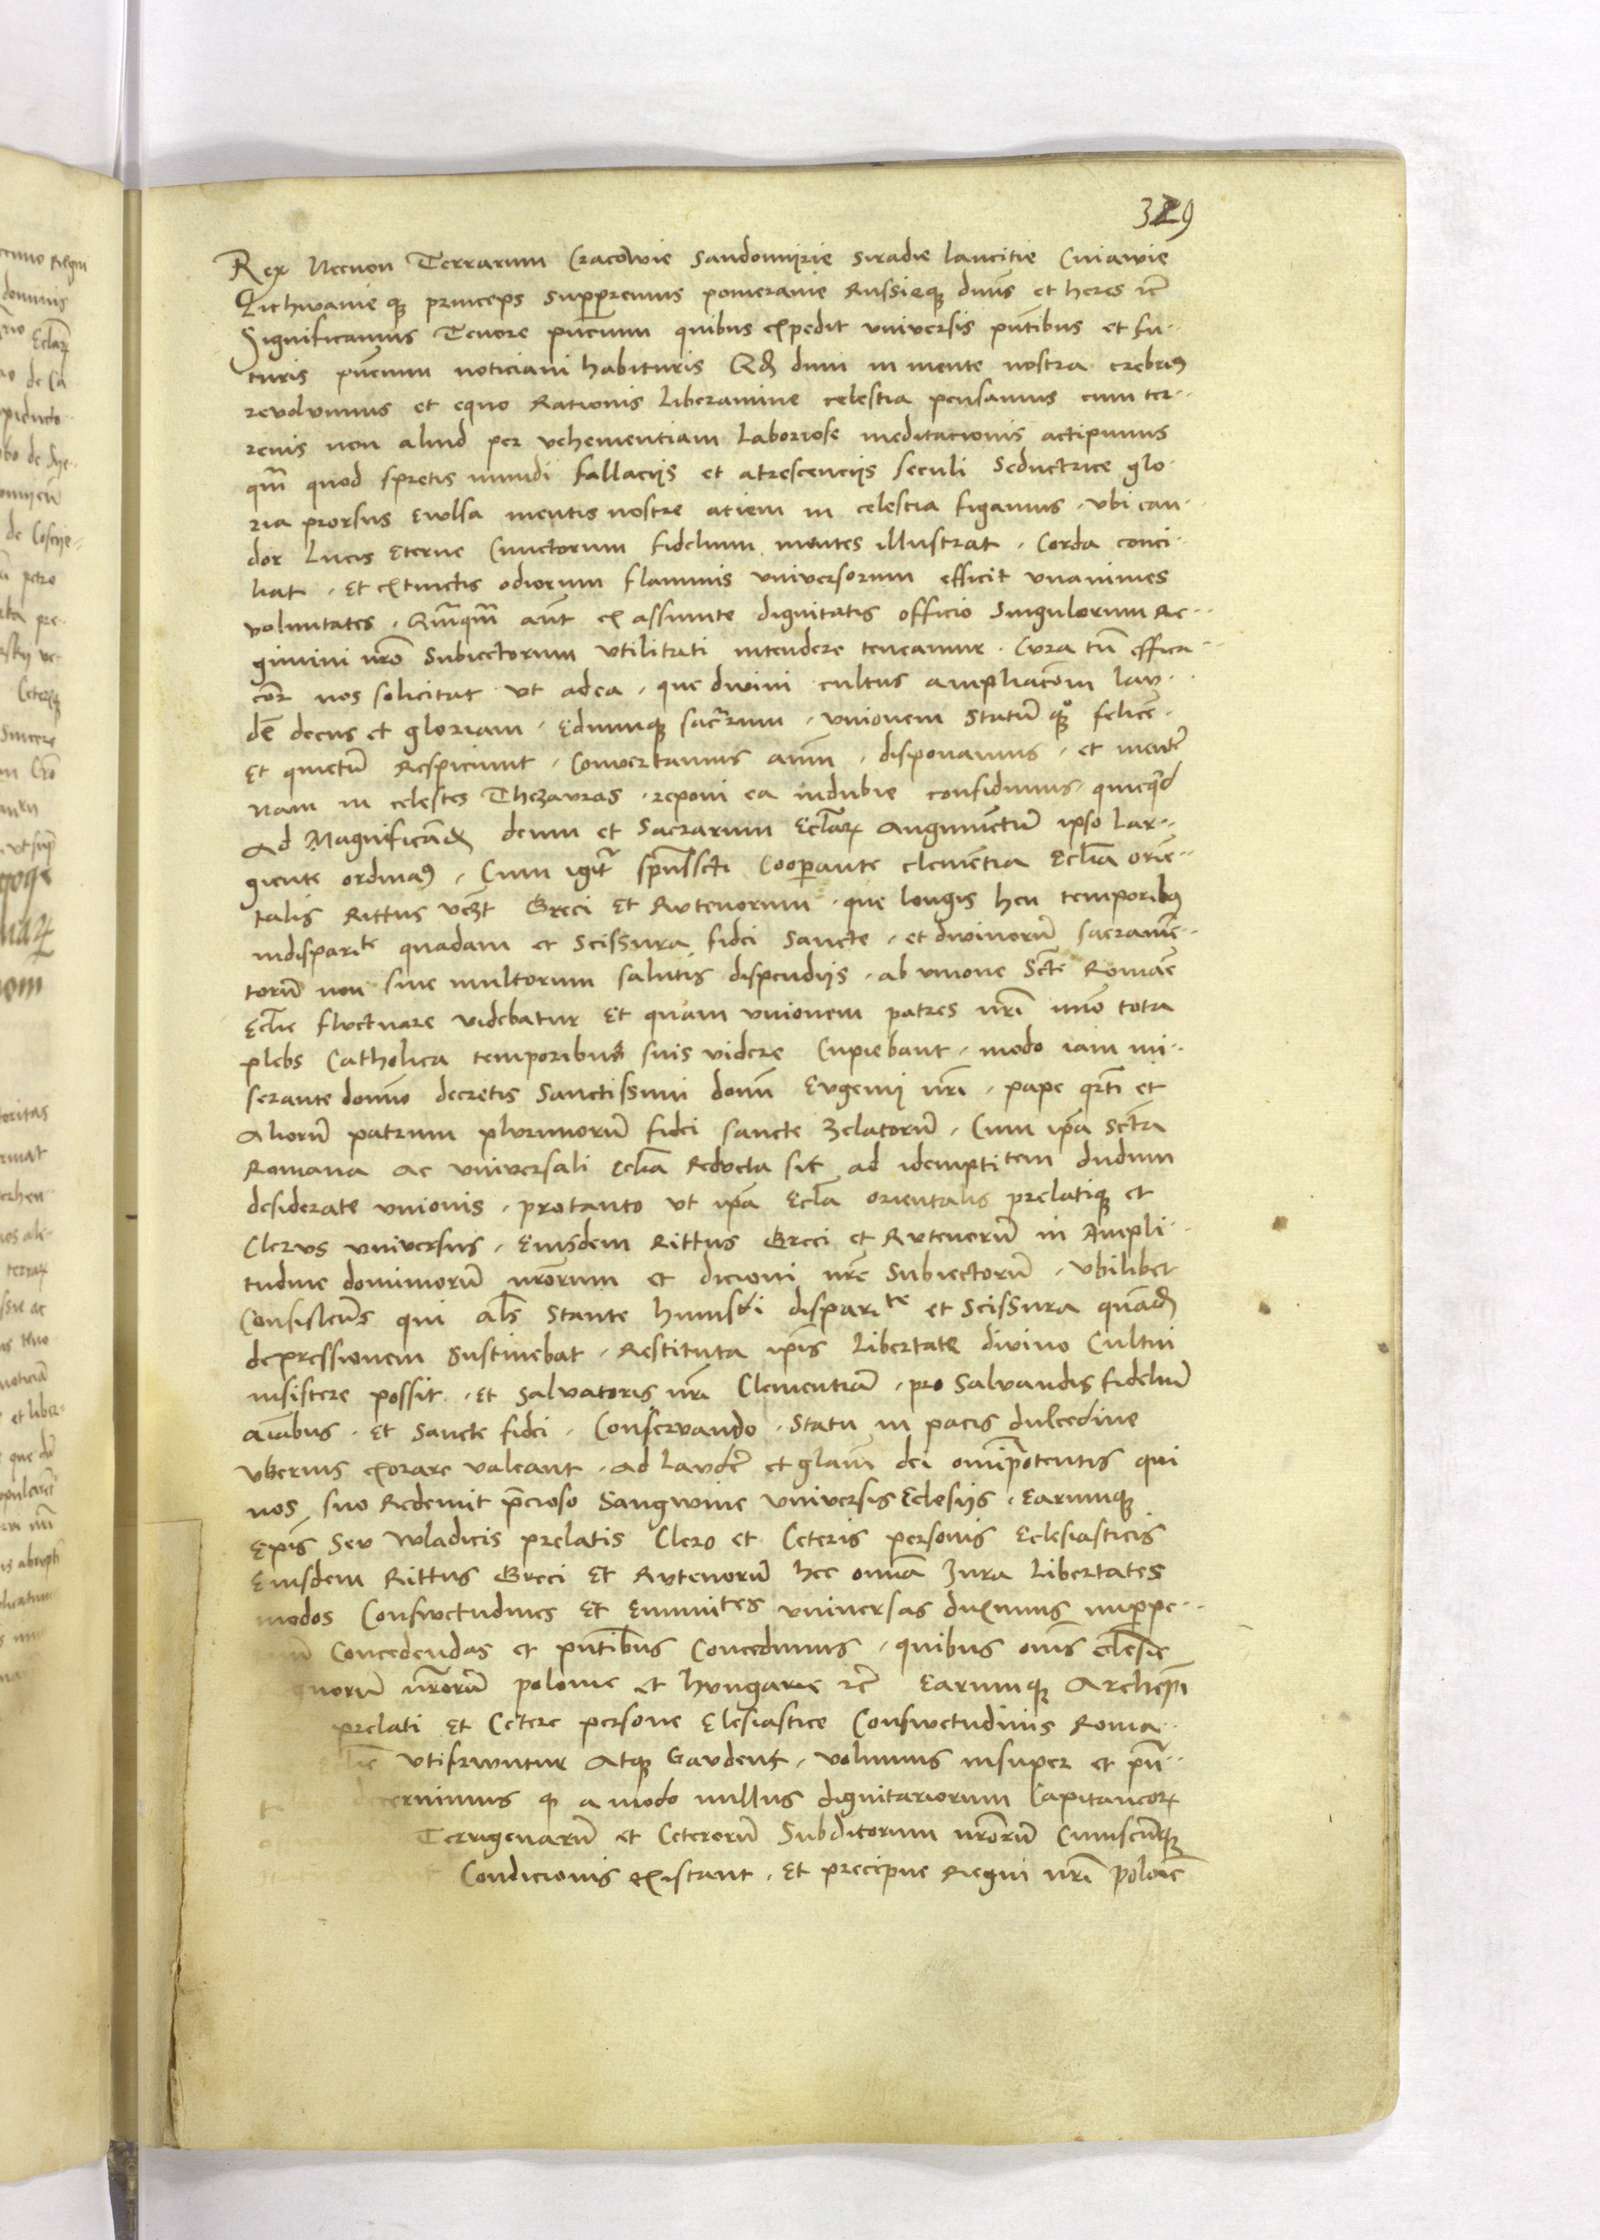 329
Rex Necnon Terrarum Cracowie Sandomirie Siradie lancitie Cuiawie
Lithwanie qꝫ princeps supppremus pomeranie Russieqꝫ dnus et heres etc
Significamus Tenore pncium quibus expedit universis pntibus et fu-
turis pncium noticiam habituris Qd dum in mente nostra crebrius
revolvimus et equo Rationis liberamine celestia pensamus cum ter-
renis non aliud per vehementiam laboriose meditacionis accipimus
qm quod spretis mundi fallaciis et atrescenciis seculi Seductrice glo-
ria prorsus Evulsa mentis nostre aciem in celestia figamus . Vbi can-
dor Lucis Eterne Cunctorum fidelium mentes illustrat . Corda conci-
liat . Et extinctis odiorum flammis universorum efficit vnanimes
voluntates . Qmqm aut ex assumte dignitatis officio Singulorum Re-
gimini nro Subiectorum Vtilitati intendere teneamur . Cura tn effica-
cior nos solicitat ut ad ea . que divini cultus ampliacom lau-
de decus et gloriam . Edumqꝫ sacrarum . Vnionem Statum qꝫ felice
Et quietu Respiciunt . Convertamus aim . disponamus . et mente
nam in celestes Thezauros . reponi ea indubie confidimus . quicqd
Ad Magnificand deum et Sacrarum Ecliarꝫ Augumentum ipso Lar-
giente ordinas . Cum igitr spussscti Cooperante clementia Eclia orie-
talis Rittus vczt Greci Et Rutenorum . que longis heu temporibꝫ
indisparite quadam et Scissura fidei Sancte . et divinoru sacrame-
toru non sine multorum salutis dispendiis . ab unione Scte Romae
Eclie fluctuare videbatur Et quam unionem patres nri imo tota
plebs Catholica temporibus suis videre Cupiebant . modo iam mi-
serante domino decretis Sanctissimi domi Eugenii nri . pape qrti et
Alioru patrum plurimoru fidei sancte zelatoru . Cum ipa Scta
Romana ac Universali Eclia Reducta sit ad idemptitem dudum
desiderate unionis . protanto ut ipa Eclia orientalis prelatiqꝫ et
Clerus universus . Eiusdem Rittus Greci et Rutenoru in Ampli-
tudine dominioru nrorum et dicioni nre Subiectoru . Vbilibet
Consistens qui als Stante huiusdi disparite et Scissura quad
depressionem Sustinebat . Restituta ipis Libertate divino Cultui
insistere possit . et Salvatoris nri Clementia . pro Salvandis fideliu
aiabus . et Sancte fidei . Conservando . Statu in pacis dulcedine
vberius exorare valeant . Ad Laude et glam dei omipotentis qui
nos suo Redemit pcioso Sangwine Universis Eclesiis . Earumqꝫ
Epis Seu Wladicis prelatis Clero et Ceteris personis Eclesiasticis
Eiusdem Rittus Greci Et Rutenoru hec omia Jura Libertates
modos Conswetudines Et Emunites universas duximus inppe-
Concedendas et pntibus Concedimus . quibus omis eclesie
gnoru nroru polonie et hungarie etc Earumqꝫ Archepi
prelati et Cetere persone Elesiastice Conswetudinis Roma-
Eclie Utifruuntur Atqꝫ Gaudent . Volumus insuper et pn-
decernimus qꝫ a modo nullus dignitariorum Capitaneorꝫ
Terrigenaru et Ceteroru Subditorum nroru Cuiuscuqꝫ
Condicionis existant . Et precipue Regni nri Polonie